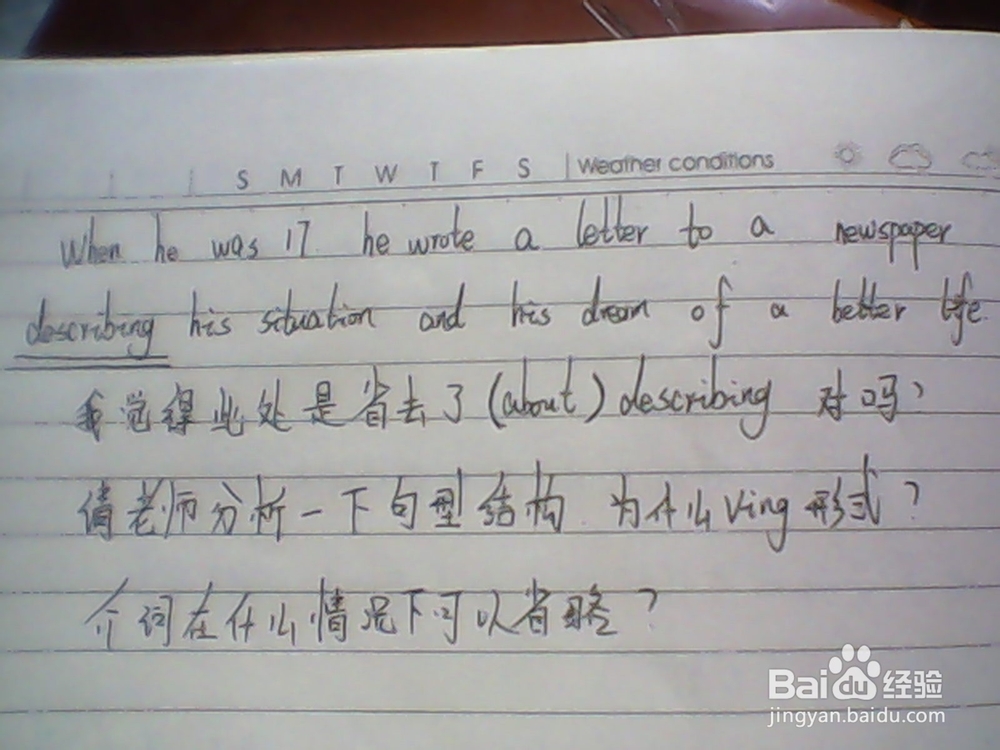 S M T W T F S Weather conditions
When he was 17 he wrote a letter to a newspaper
describing his situation and his dream of a better life.
我觉得此处是省去了(about) describing 对吗?
请老师分析一下句型结构. 为什么Ving形式?
介词在什么情况下可以省略?
Baidu 经验
jingyan.baidu.com